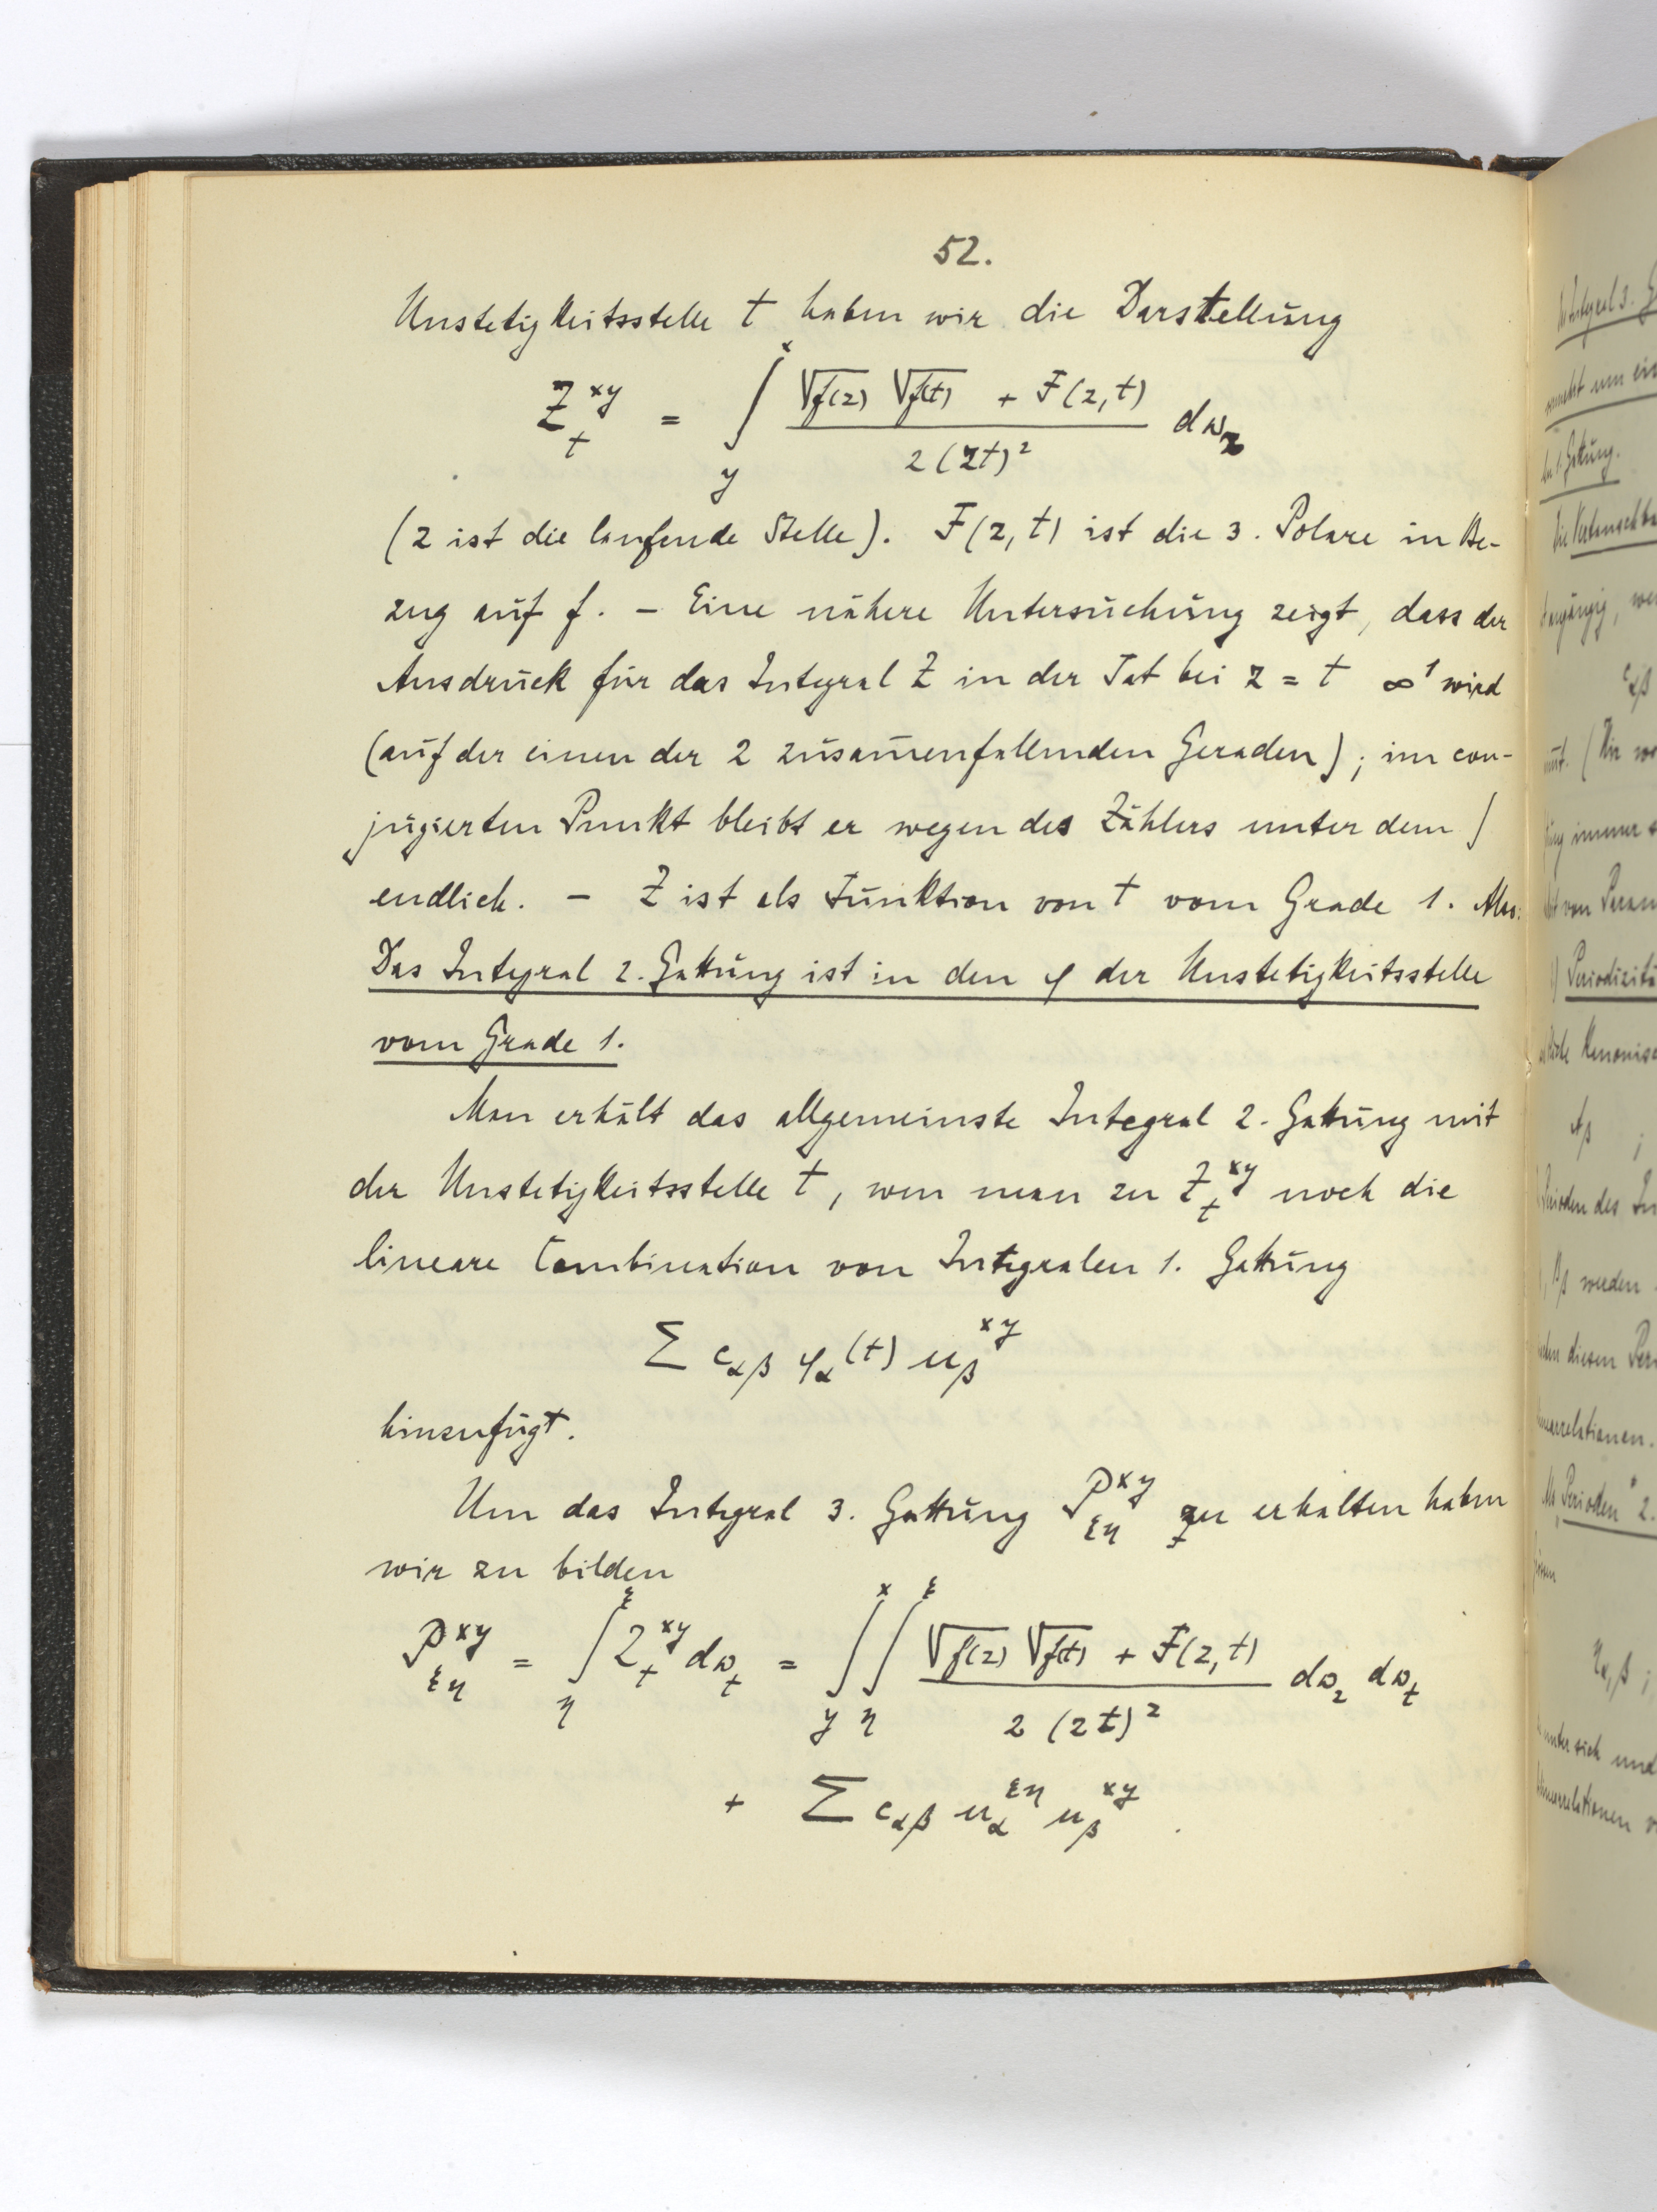 52.
Unstetigkeitsstelle t haben wir die Darstellung
Z_t^{xy} = ∫_y^x (√f(z) √f(t) + F(z, t)) / (2 (zt)²) dω_z
(z ist die laufende Stelle). F(z, t) ist die 3. Polare in Be-
zug auf f. – Eine nähere Untersuchung zeigt, dass der
Ausdruck für das Integral Z in der Tat bei z = t ∞¹ wird
(auf der einen der 2 zusam̄enfallenden Geraden); im con-
jugierten Punkt bleibt er wegen des Zählers unter dem ∫
endlich. – Z ist als Funktion von t vom Grade 1. Also:
Das Integral 2. Gattung ist in den φ der Unstetigkeitsstelle
vom Grade 1.
Man erhält das allgemeinste Integral 2. Gattung mit
der Unstetigkeitsstelle t, wen man zu Z_t^{xy} noch die
lineare Combination von Integralen 1. Gattung
Σ c_{αβ} φ_α(t) u_β^{xy}
hinzufügt.
Um das Integral 3. Gattung P_{ξη}^{xy} zu erhalten haben
wir zu bilden
P_{ξη}^{xy} = ∫_η^ξ Z_t^{xy} dω_t = ∫_y^x ∫_η^ξ (√f(z) √f(t) + F(z, t)) / (2 (zt)²) dω_z dω_t
+ Σ c_{αβ} u_α^{ξη} u_β^{xy} .